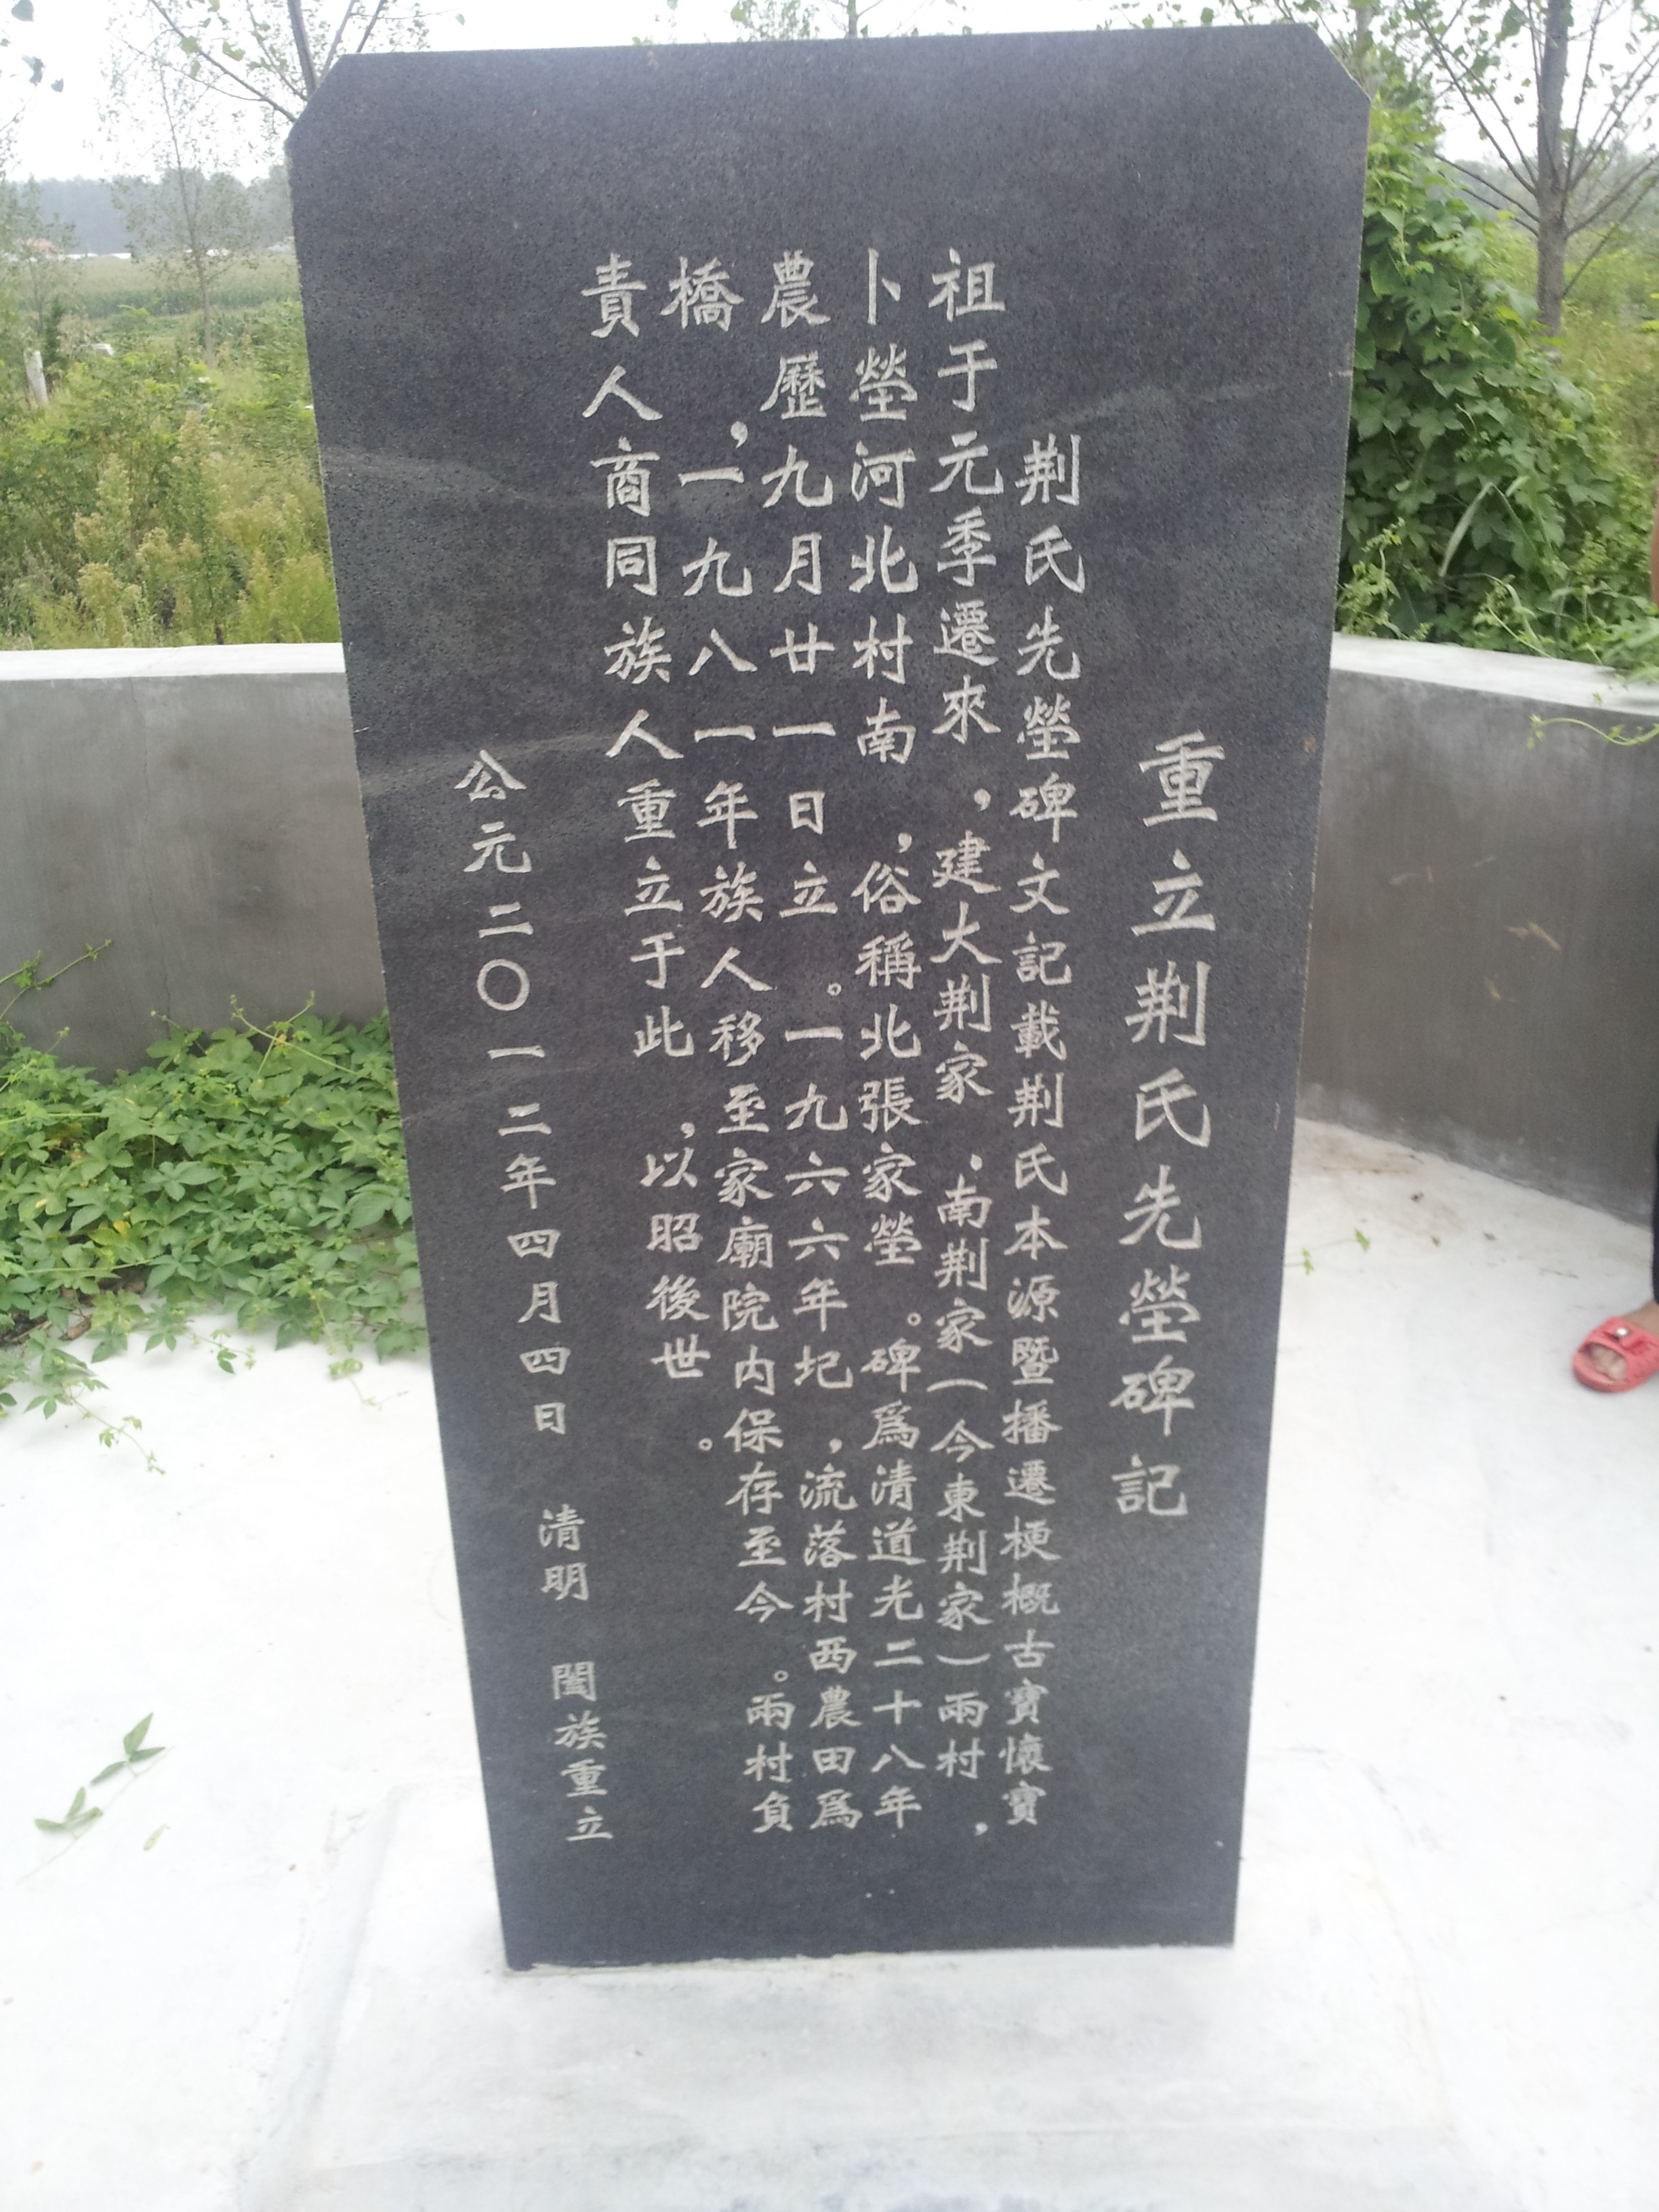 重立荆氏先塋碑記
荆氏先塋碑文記載荆氏本源暨播遷梗概古寶懷寶
祖于元季遷來，建大荆家．南荆家(今東荆家)兩村，
卜塋河北村南，俗稱北張家塋。碑爲清道光二十八年
農歷九月廿一日立。一九六六年圮，流落村西農田爲
橋，一九八一年族人移至家廟院内保存至今。兩村負
責人商同族人重立于此，以昭後世。
公元二〇一二年四月四日 清明 闔族重立